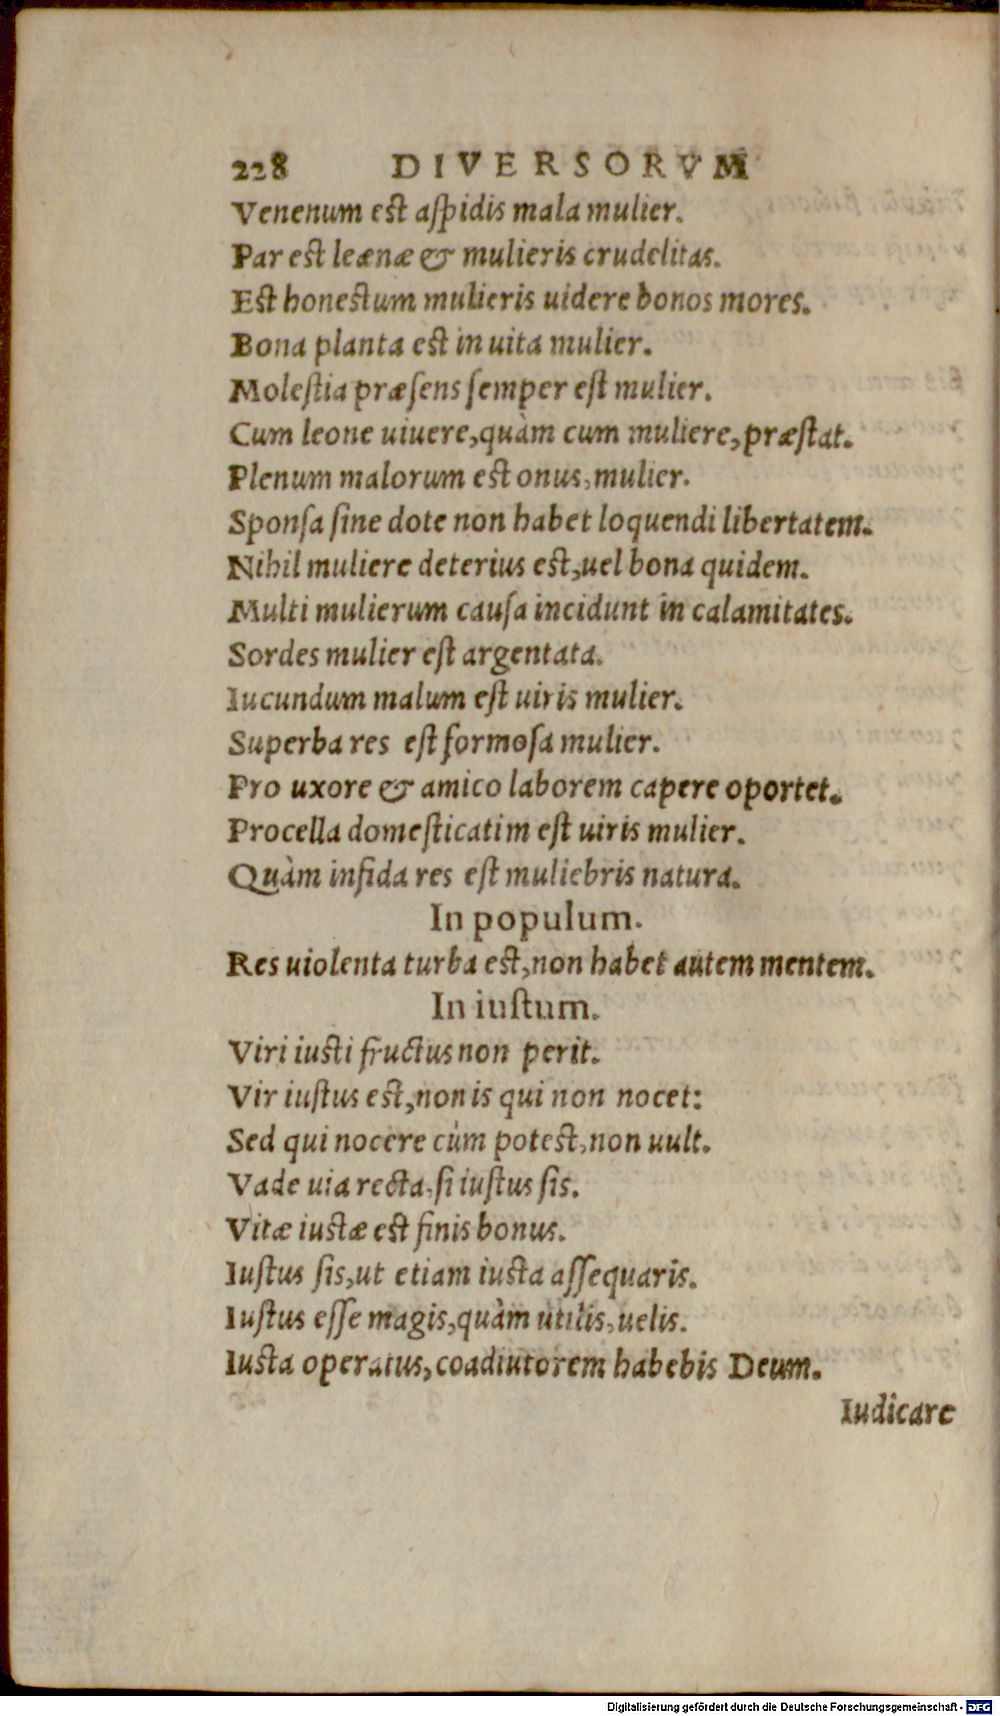 228 DIVERSORVM
Venenum est aspidis mala mulier.
Par est leænæ & mulieris crudelitas.
Est honestum mulieris uidere bonos mores.
Bona planta est in uita mulier.
Molestia præsens semper est mulier.
Cum leone uiuere, quàm cum muliere, præstat.
Plenum malorum est onus, mulier.
Sponsa sine dote non habet loquendi libertatem.
Nihil muliere deterius est, uel bona quidem.
Multi mulierum causa incidunt in calamitates.
Sordes mulier est argentata.
Iucundum malum est uiris mulier.
Superba res est formosa mulier.
Pro uxore & amico laborem capere oportet.
Procella domesticatim est uiris mulier.
Quàm infida res est muliebris natura.
In populum.
Res uiolenta turba est, non habet autem mentem.
In iustum.
Viri iusti fructus non perit.
Vir iustus est, non is qui non nocet:
Sed qui nocere cùm potest, non uult.
Vade uia recta, si iustus sis.
Vitæ iustæ est finis bonus.
Iustus sis, ut etiam iusta assequaris.
Iustus esse magis, quàm utilis, uelis.
Iusta operatus, coadiutorem habebis Deum.
Iudicare
Digitalisierung gefördert durch die Deutsche Forschungsgemeinschaft - DFG